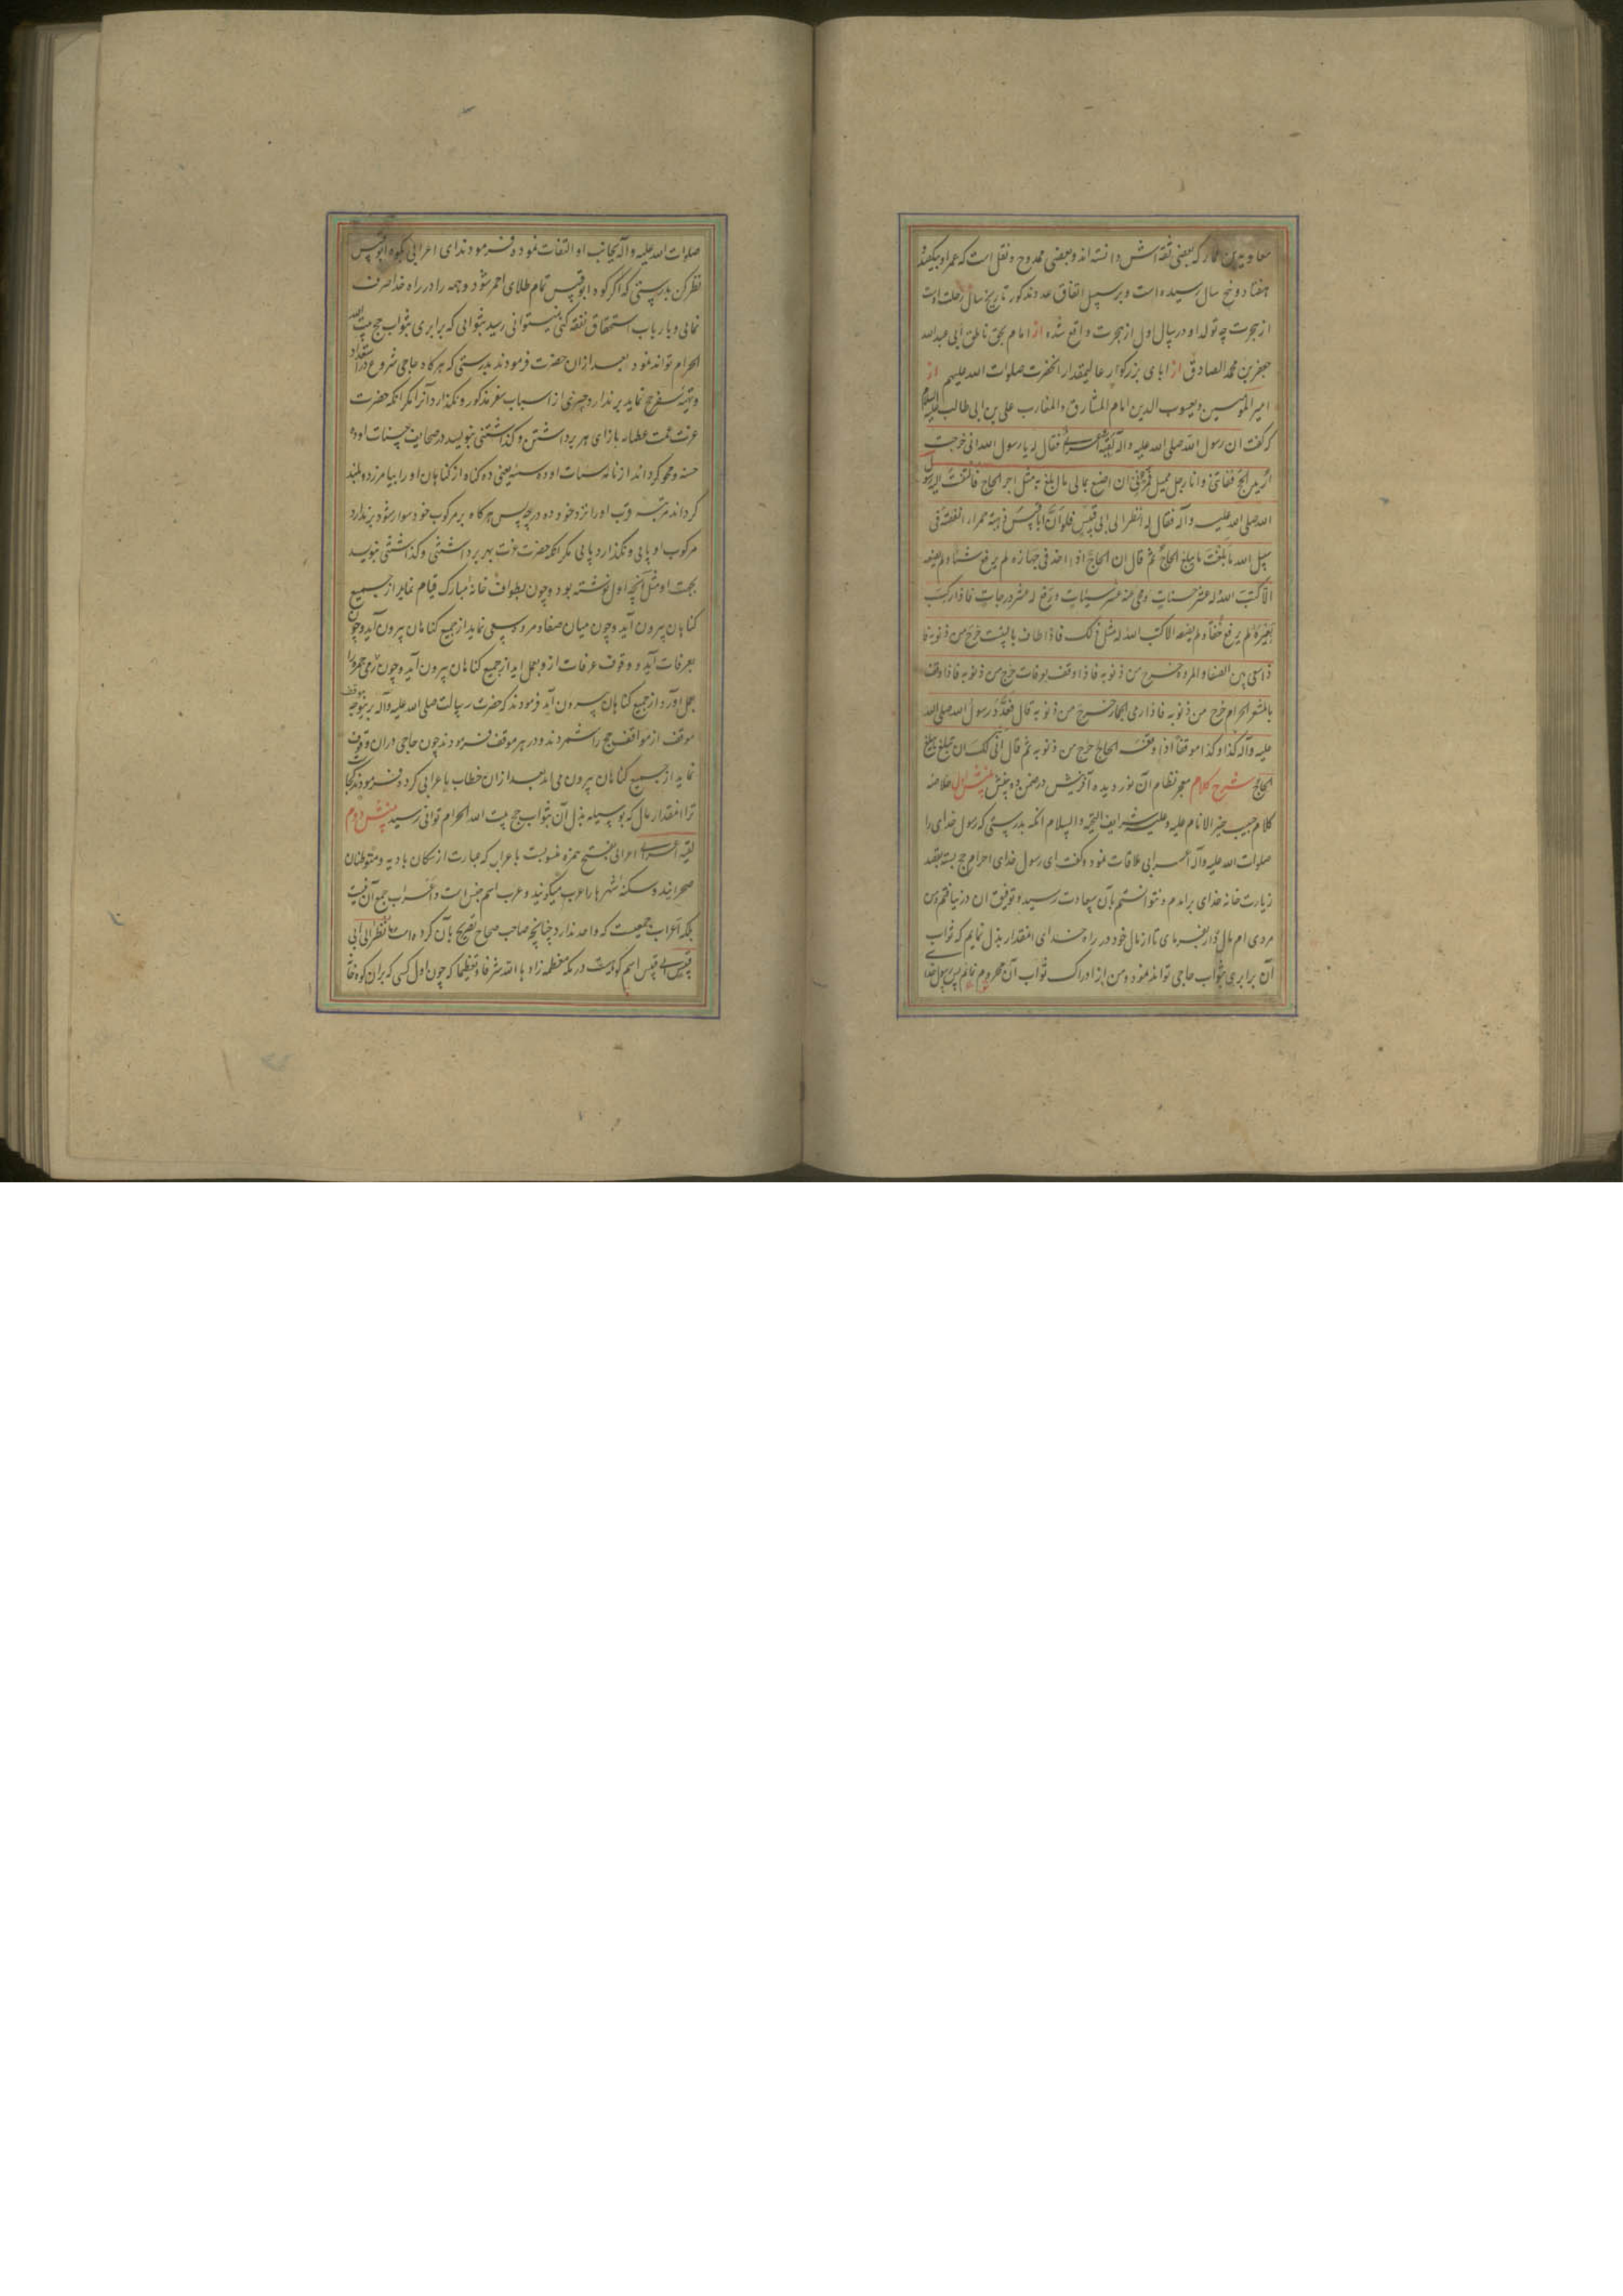 معاویة بن عمار که بعضی ثقه اش دانسته اند و بعضی ممدوح و نقل است که عمر او بیکصد و
هفتاد و پنج سال رسیده است و بر سبیل اتفاق عدد مذکور تاریخ سال رحلت اوست
از هجرت چه تولد او در سال اول از هجرت واقع شده از امام بحق ناطق ابی عبدالله
جعفر بن محمد الصادق از ابای بزرکوار عالیمقدار انحضرت صلوات الله علیهم از
امیر المؤمنین و یعسوب الدین امام المشارق و المغارب علی بن ابی طالب علیه السلام
که کفت ان رسول الله صلی الله علیه و اله لقیه اعرابی فقال له یا رسول الله انی خرجت
ارید الحج ففاتنی و انا رجل ممیل فمرنی ان اصنع بمالی ما ابلغ به مثل اجر الحاج فالتفت الیه رسول
الله صلی الله علیه و اله فقال له انظر الی ابی قبیس فلو ان ابا قبیس ذهبة حمراء انفقته فی
سبیل الله ما بلغت ما یبلغ الحاج ثم قال ان الحاج اذا اخذ فی جهازه لم یرفع شیئا و لم یضعه
الا کتب الله له عشر حسنات و محی عنه عشر سیئات و رفع له عشر درجات فاذا رکب
بعیره لم یرفع خفا و لم یضعه الا کتب الله له مثل ذلک فاذا طاف بالبیت خرج من ذنوبه فا
ذا سعی بین الصفا و المروة خرج من ذنوبه فاذا وقف بعرفات خرج من ذنوبه فاذا وقف
بالمشعر الحرام خرج من ذنوبه فاذا رمی الجمار خرج من ذنوبه قال فعدد رسول الله صلی الله
علیه و آله کذا و کذا موقفا اذا وقف الحاج خرج من ذنوبه ثم قال انی لک ان تبلغ ما یبلغ
الحاج شرح کلام معجز نظام آن نور دیده آفرینش در ضمن دو بخش بخش اول خلاصه
کلام حبیب خیر الانام علیه و علیه شرایف التحیه و السلام انکه بدرستی که رسول خدای را
صلوات الله علیه و آله اعرابی ملاقات نمود و کفت ای رسول خدای احرام حج بسته بقصد
زیارت خانه خدای برامدم و نتوانستم بان سعادت رسید و توفیق ان در نیافتم و من
مردی ام مال دار بفرمای تا از مال خود در راه خدای انمقدار بذل نمایم که ثواب
آن برابری بثواب حاجی تواند نمود و من از ادراک ثواب آن محروم نمانم پس رسول خدا
صلوات الله علیه و آله بجانب او التفات نموده فرمودند ای اعرابی بکوه ابو قبیس
نظر کن بدرستی که اکر کوه ابو قبیس تمام طلای احمر شود و همه را در راه خدا صرف
نمایی و بارباب استحقاق نفقه کنی نمیتوانی رسید بثوابی که برابری بثواب حج بیت الله
الحرام تواند نمود بعد از ان حضرت فرمودند بدرستی که هرکاه حاجی شروع در استعداد
و تهیه سفر حج نماید بر ندارد چیزی از اسباب سفر مذکور و نکذارد آنرا مکر انکه حضرت
عزت عمت عطایاه بازای هر برداشتن و کذاشتنی بنویسد در صحایف حسنات او ده
حسنه و محو کرداند از نامه سیئات او ده سیئه یعنی ده کناه از کناهان او را بیامرزد و بلند
کرداند مرتبه قرب او را نزد خود ده درجه پس هرکاه بر مرکوب خود سوار شود بر ندارد
مرکوب او پایی و نکذارد پایی مکر انکه حضرت عزت بهر برداشتنی و کذاشتنی بنویسد
بجهت او مثل انچه اول نوشته بود و چون بطواف خانه مبارک قیام نماید از جمیع
کناهان بیرون آید و چون میان صفا و مروه سعی نماید از جمیع کناهان بیرون آید و چون
بعرفات آید و وقوف عرفات ازو بعمل اید از جمیع کناهان بیرون آید و چون رمی جمره را
بعمل آورد از جمیع کناهان بیرون آید فرمودند که حضرت رسالت صلی الله علیه و آله
موقف از مواقف حج را شمردند و در هر موقف فرمودند چون حاجی در ان وقوف
نماید از جمیع کناهان بیرون می اید بعد از ان خطاب باعرابی کرد و فرمودند کجا
ترا انمقدار مال که بوسیله بذل آن بثواب حج بیت الله الحرام توانی رسید بخش دوم
لقیه اعرابی اعرابی بفتح همزه منسوبست باعراب که عبارت از سکان بادیه و متوطنان
صحرایند و سکنه شهرها را عرب میکویند و عرب اسم جنس است و اعراب جمع آن نیست
بلکه اعراب جمعیست که واحد ندارد چنانچه صاحب صحاح تصریح بآن کرده است انظر الی ابی
قبیس ابی قبیس اسم کوهیست در مکه معظمه زادها الله شرفا و تعظیما که چون اول کسی که بران کوه خانه